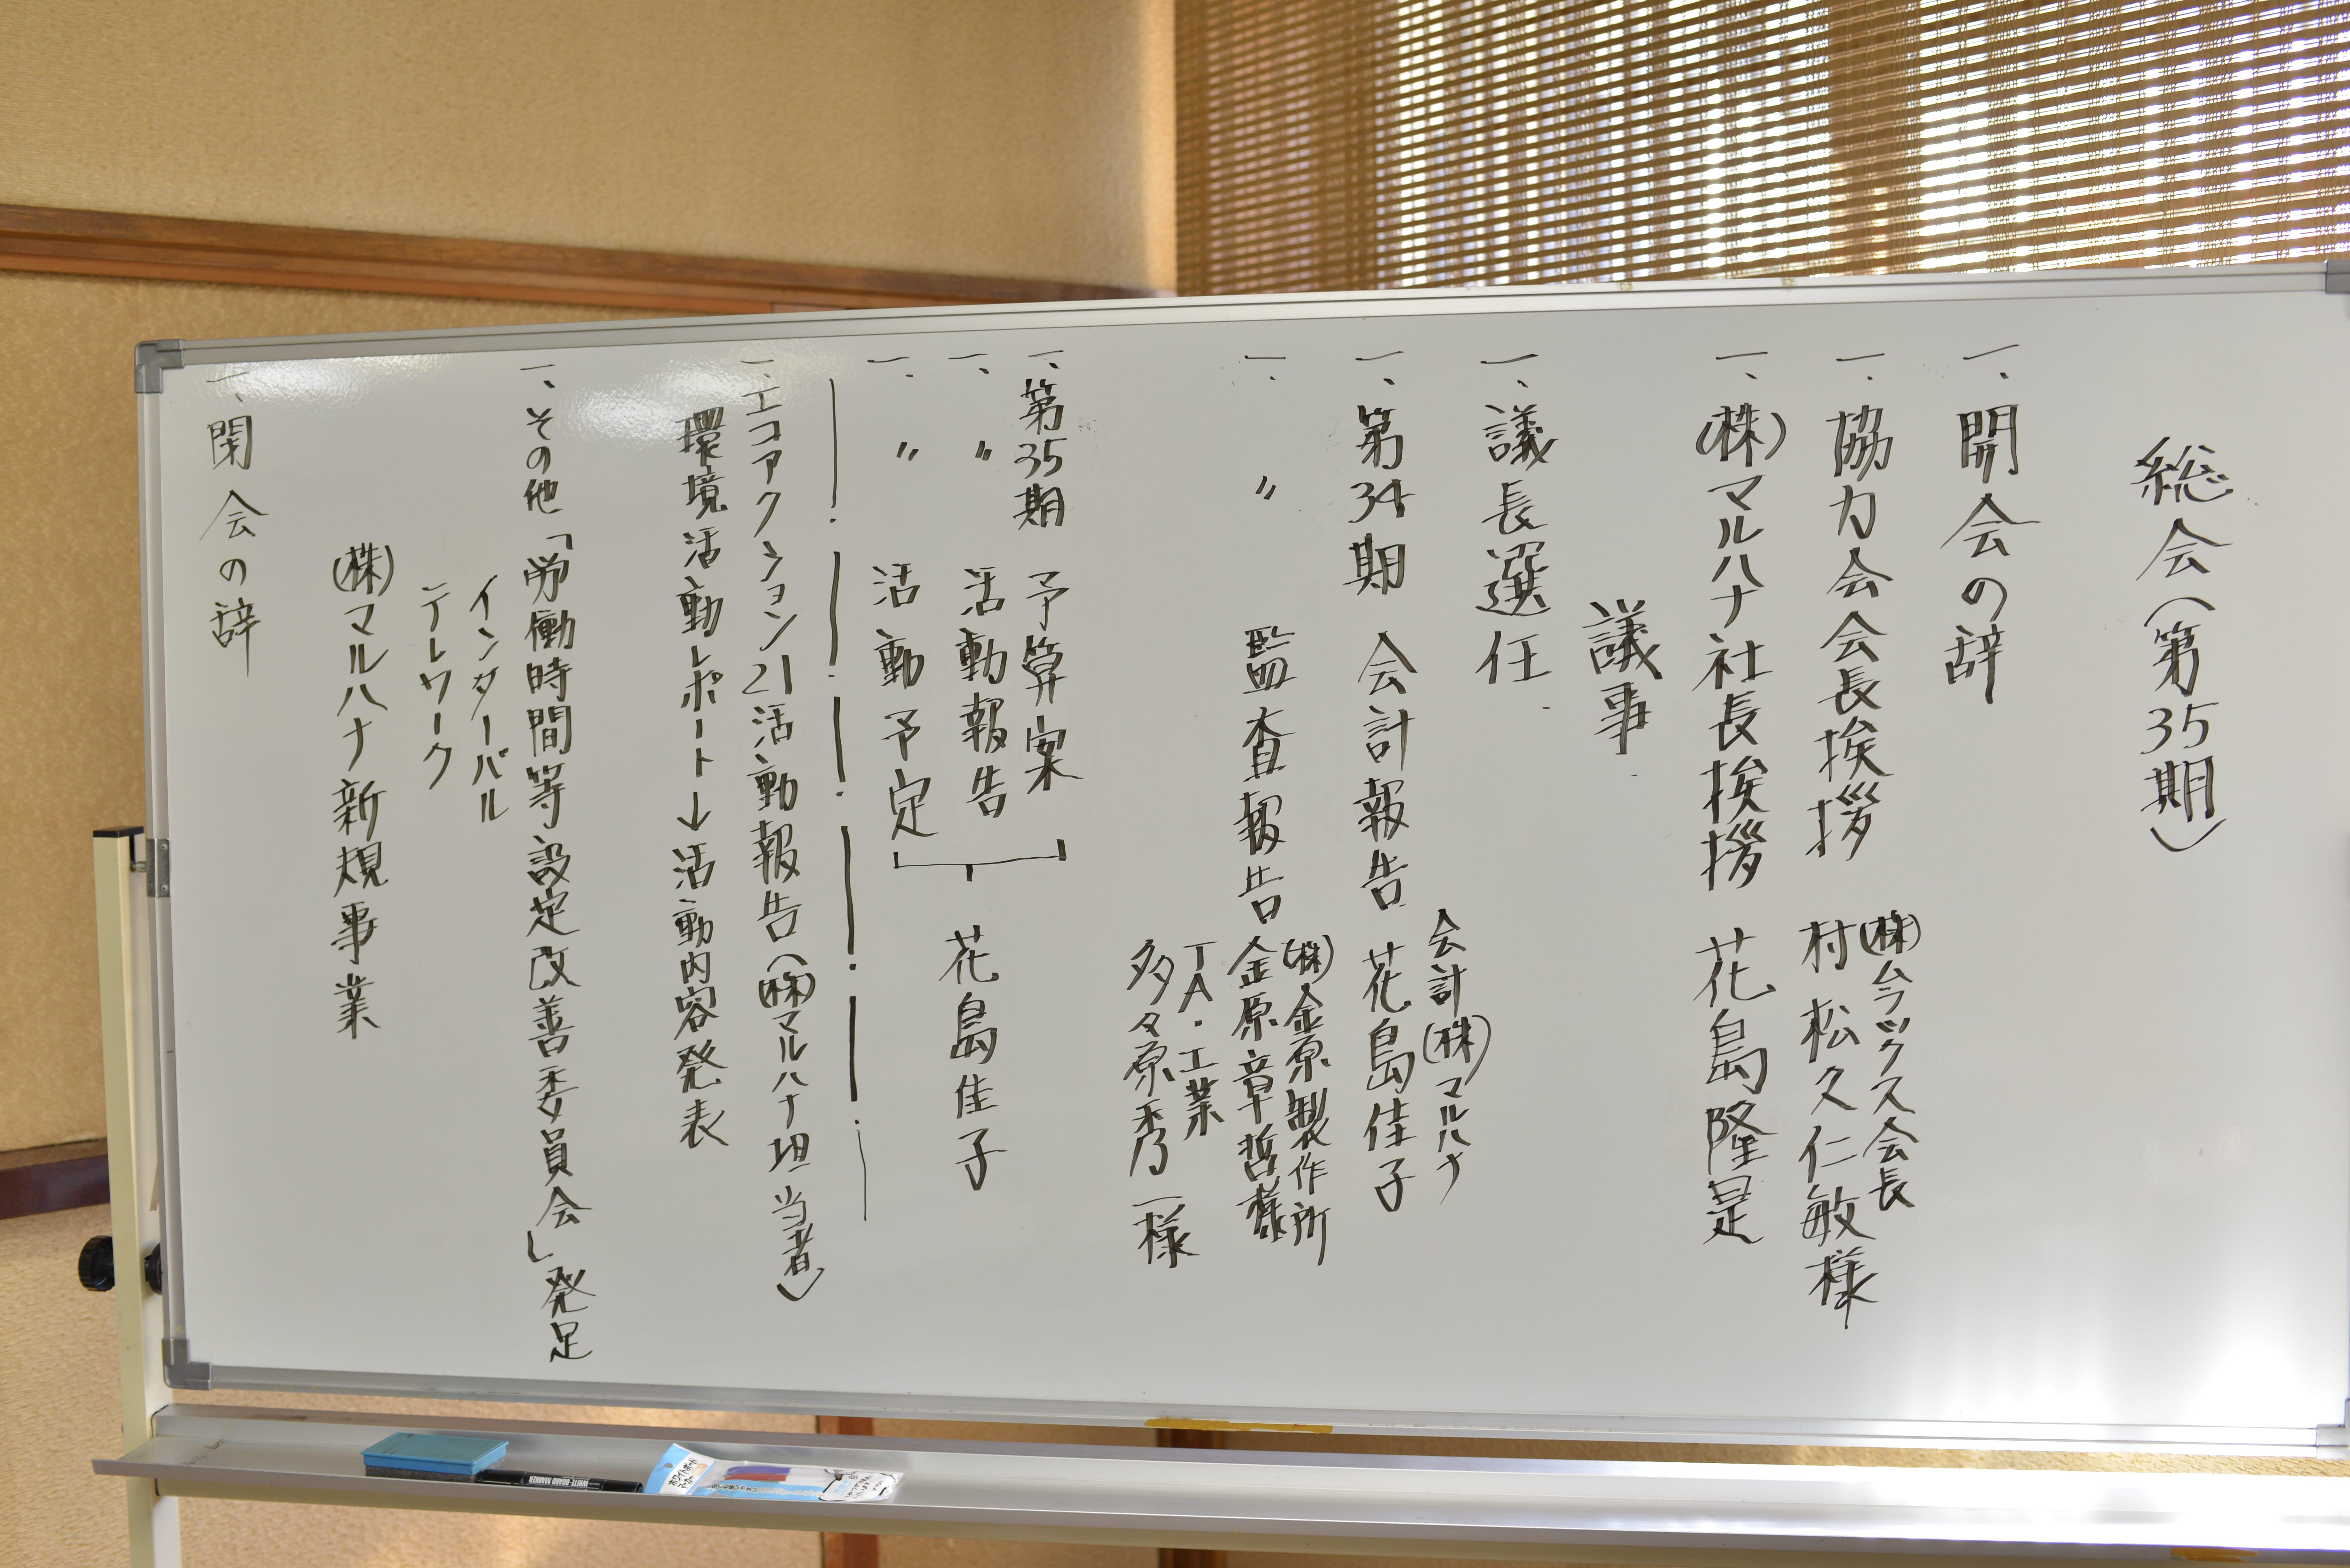 総会(第35期)
一、開会の辞
一、協力会会長挨拶
(株)今ックス会長
村松久仁敏様
一、(株)マルハナ社長挨拶 花島隆是
議事
一、議長選任
一、第34期 会計報告
会計(株)マルハナ
花島佳子
一、〃 監査報告
(株)金原製作所
金原章哲様
TA・工業
多々原秀一様
一、第35期 予算案
一、〃 活動報告
一、〃 活動予定
花島佳子
一、エコアクション21活動報告((株)マルハナ担当者)
環境活動レポート→活動内容発表
一、その他「労働時間等設定改善委員会」発足
インターバル
テレワーク
(株)マルハナ新規事業
一、閉会の辞
WHITE BOARD MARKER
ホワイトボード